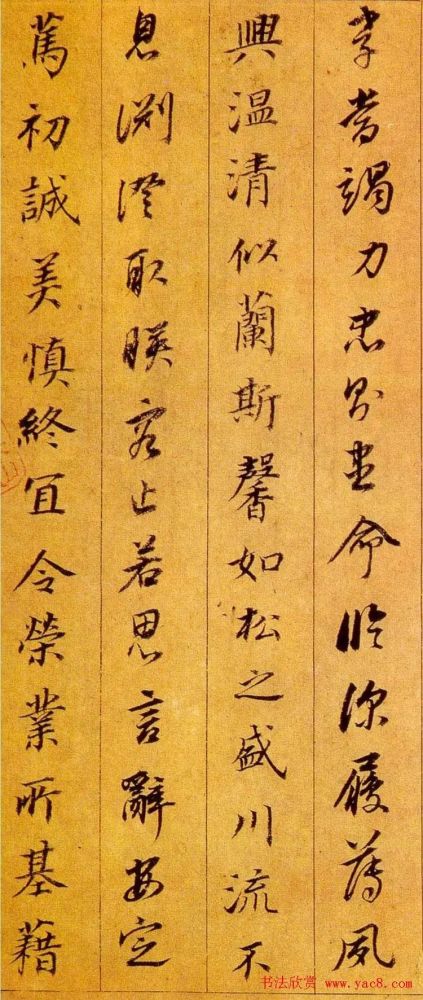 孝當竭力忠則盡命臨深履薄夙
興温清似蘭斯馨如松之盛川流不
息渊澄取暎容止若思言辭安定
篤初誠美慎終宜令榮業所基藉
书法欣赏 www.yac8.com